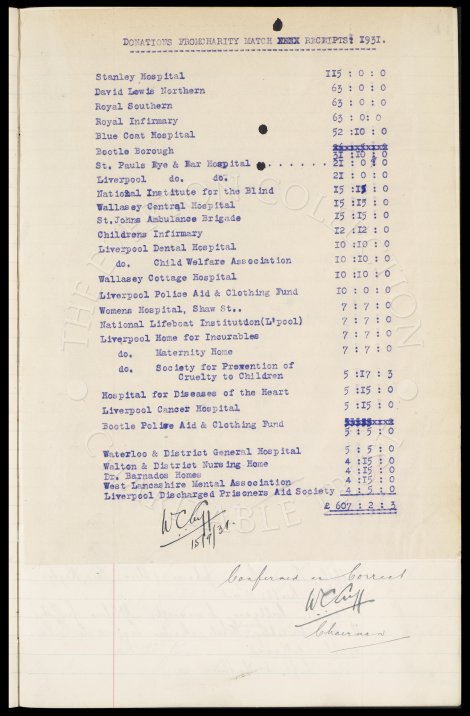 DONATIONS FROMCHARITY MATCH XXXX RECEIPTS: 1931.
Stanley Hospital 115 : 0 : 0
David Lewis Northern 63 : 0 : 0
Royal Southern 63 : 0 : 0
Royal Infirmary 63 : 0: 0
Blue Coat Hospital 52 :10 : 0
Bootle Borough 31 :10 : 0
St. Pauls Eye & Ear Hospital . . . . . . 21 : 0 : 0
Liverpool do. do. 21 : 0 : 0
National Institute for the Blind 15 :15 : 0
Wallasey Central Hospital 15 :15 : 0
St.Johns Ambulance Brigade 15 :15 : 0
Childrens Infirmary 12 :12 : 0
Liverpool Dental Hospital 10 :10 : 0
do. Child Welfare Association 10 :10 : 0
Wallasey Cottage Hospital 10 :10 : 0
Liverpool Police Aid & Clothing Fund 10 : 0 : 0
Womens Hospital, Shaw St.. 7 : 7 : 0
National Lifeboat Institution(L'pool) 7 : 7 : 0
Liverpool Home for Incurables 7 : 7 : 0
do. Maternity Home 7 : 7 : 0
do. Society for Prevention of
Cruelty to Children 5 :17 : 3
Hospital for Diseases of the Heart 5 :15 : 0
Liverpool Cancer Hospital 5 :15 : 0
Bootle Police Aid & Clothing Fund
5 : 5 : 0
Waterloo & District General Hospital 5 : 5 : 0
Walton & District Nursing Home 4 :15 : 0
Dr. Barnados Homes 4 :15 : 0
West Lancashire Mental Association 4 :15 : 0
Liverpool Discharged Prisoners Aid Society 4 : 5 : 0
£ 607 : 2 : 3
W.C. Cuff
15/7/31.
Confirmed as Correct
W.C. Cuff
Chairman